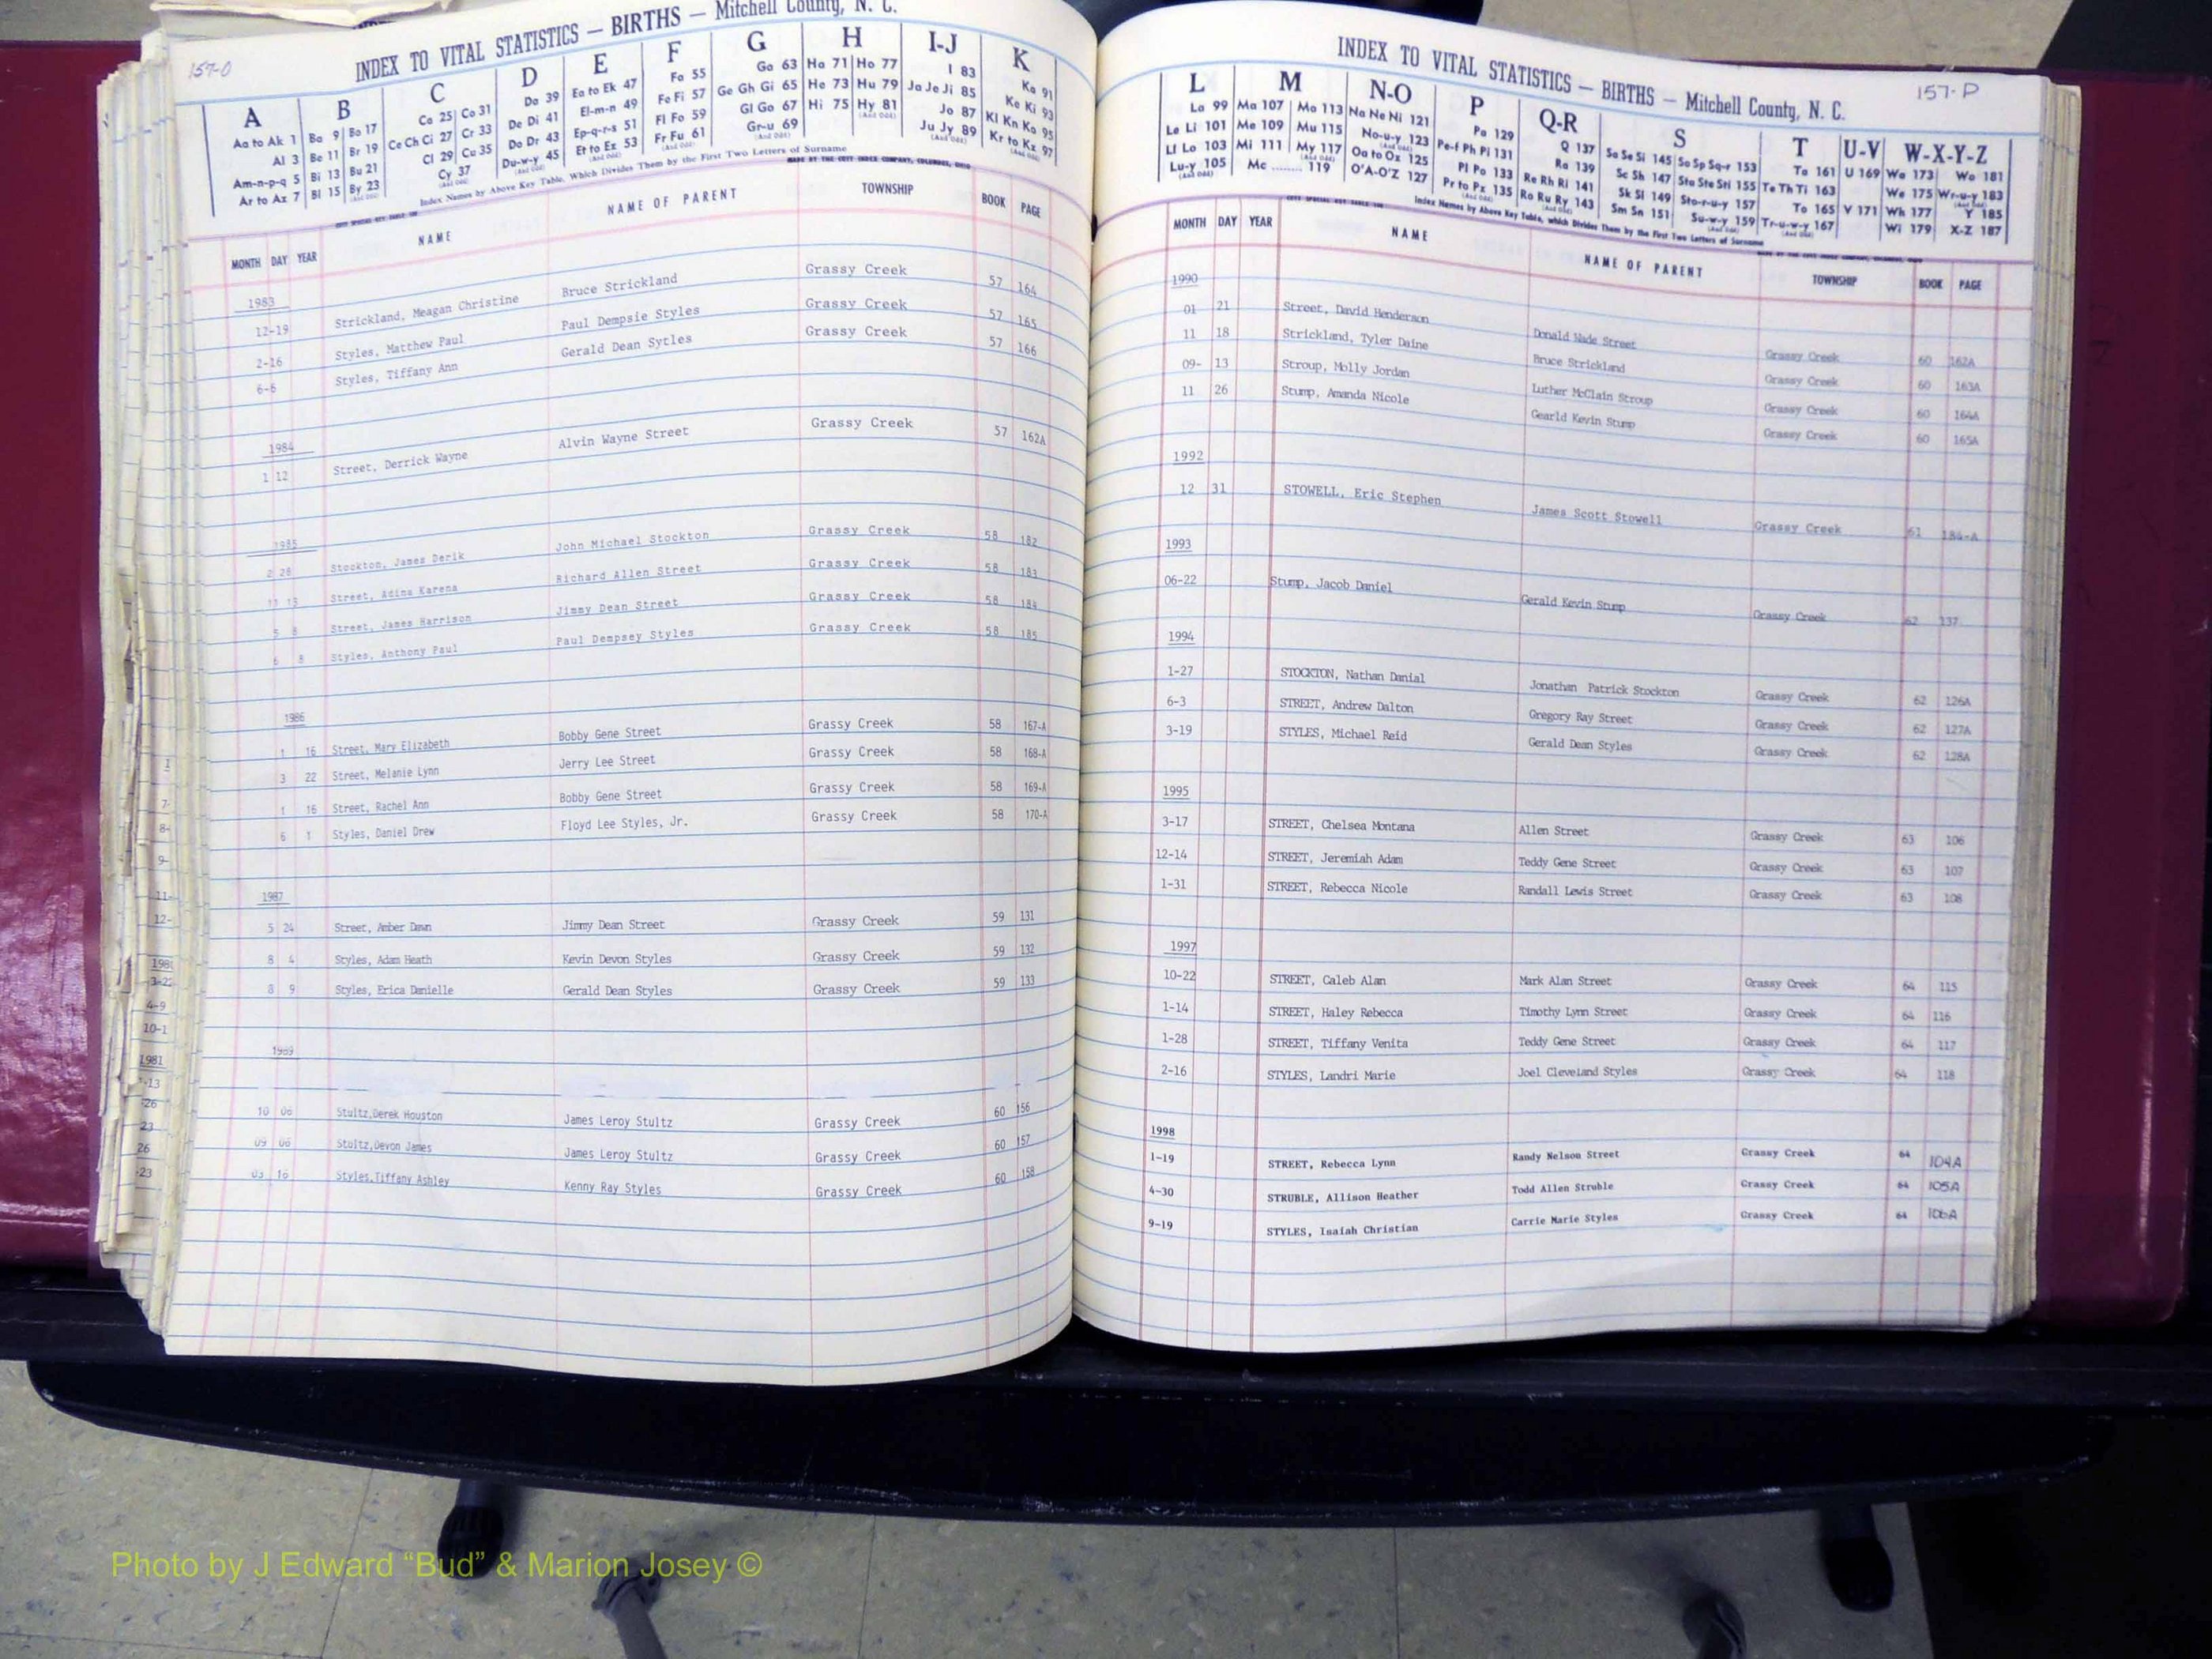 157-O
INDEX TO VITAL STATISTICS — BIRTHS — Mitchell County, N. C.
A B C D E F G H I-J K
Aa to Ak 1 Ba 9 Bo 17 Ca 25 Co 31 Da 39 Ea to Ek 47 Fa 55 Ga 63 Ha 71 Ho 77 I 83 Ka 91
Al 3 Be 11 Br 19 Ce Ch Ci 27 Cr 33 De Di 41 El-m-n 49 Fe Fi 57 Ge Gh Gi 65 He 73 Hu 79 Ja Je Ji 85 Ke Ki 93
Am-n-p-q 5 Bi 13 Bu 21 Cl 29 Cu 35 Do Dr 43 Ep-q-r-s 51 Fl Fo 59 Gl Go 67 Hi 75 Hy 81 Jo 87 Kl Kn Ko 95
Ar to Az 7 Bl 15 By 23 Cy 37 Du-w-y 45 Et to Ez 53 Fr Fu 61 Gr-u 69 Ju Jy 89 Kr to Kz 97
Index Names by Above Key Table, Which Divides Them by the First Two Letters of Surname
MONTH DAY YEAR NAME NAME OF PARENT TOWNSHIP BOOK PAGE
1983
12-19 Strickland, Meagan Christine Bruce Strickland Grassy Creek 57 164
2-16 Styles, Matthew Paul Paul Dempsie Styles Grassy Creek 57 165
6-6 Styles, Tiffany Ann Gerald Dean Sytles Grassy Creek 57 166
1984
1 12 Street, Derrick Wayne Alvin Wayne Street Grassy Creek 57 162A
1985
2 28 Stockton, James Derik John Michael Stockton Grassy Creek 58 182
Street, Adina Karena Richard Allen Street Grassy Creek 58 183
5 8 Street, James Harrison Jimmy Dean Street Grassy Creek 58 184
6 8 Styles, Anthony Paul Paul Dempsey Styles Grassy Creek 58 185
1986
1 16 Street, Mary Elizabeth Bobby Gene Street Grassy Creek 58 167-A
3 22 Street, Melanie Lynn Jerry Lee Street Grassy Creek 58 168-A
1 16 Street, Rachel Ann Bobby Gene Street Grassy Creek 58 169-A
6 1 Styles, Daniel Drew Floyd Lee Styles, Jr. Grassy Creek 58 170-A
1987
5 24 Street, Amber Dawn Jimmy Dean Street Grassy Creek 59 131
8 4 Styles, Adam Heath Kevin Devon Styles Grassy Creek 59 132
8 9 Styles, Erica Danielle Gerald Dean Styles Grassy Creek 59 133
1989
10 06 Stultz,Derek Houston James Leroy Stultz Grassy Creek 60 156
09 06 Stultz,Devon James James Leroy Stultz Grassy Creek 60 157
03 16 Styles,Tiffany Ashley Kenny Ray Styles Grassy Creek 60 158
157-P
INDEX TO VITAL STATISTICS — BIRTHS — Mitchell County, N. C.
L M N-O P Q-R S T U-V W-X-Y-Z
La 99 Ma 107 Mo 113 Na Ne Ni 121 Pa 129 Q 137 Sa Se Si 145 So Sp Sq-r 153 Ta 161 U 169 Wa 173 Wo 181
Le Li 101 Me 109 Mu 115 No-u-y 123 Pe-f Ph Pi 131 Ra 139 Sc Sh 147 Sta Ste Sti 155 Te Th Ti 163 We 175 Wr-u-y 183
Ll Lo 103 Mi 111 My 117 Oa to Oz 125 Pl Po 133 Re Rh Ri 141 Sk Sl 149 Sto-r-u-y 157 To 165 V 171 Wh 177 Y 185
Lu-y 105 Mc ........ 119 O'A-O'Z 127 Pr to Px 135 Ro Ru Ry 143 Sm Sn 151 Su-w-y 159 Tr-u-w-y 167 Wi 179 X-Z 187
Index Names by Above Key Table, which Divides Them by the First Two Letters of Surname
MONTH DAY YEAR NAME NAME OF PARENT TOWNSHIP BOOK PAGE
1990
01 21 Street, David Henderson Donald Wade Street Grassy Creek 60 162A
11 18 Strickland, Tyler Daine Bruce Strickland Grassy Creek 60 163A
09- 13 Stroup, Molly Jordan Luther McClain Stroup Grassy Creek 60 164A
11 26 Stump, Amanda Nicole Gearld Kevin Stump Grassy Creek 60 165A
1992
12 31 STOWELL, Eric Stephen James Scott Stowell Grassy Creek 61 184-A
1993
06-22 Stump, Jacob Daniel Gerald Kevin Stump Grassy Creek 62 137
1994
1-27 STOCKTON, Nathan Danial Jonathan Patrick Stockton Grassy Creek 62 126A
6-3 STREET, Andrew Dalton Gregory Ray Street Grassy Creek 62 127A
3-19 STYLES, Michael Reid Gerald Dean Styles Grassy Creek 62 128A
1995
3-17 STREET, Chelsea Montana Allen Street Grassy Creek 63 106
12-14 STREET, Jeremiah Adam Teddy Gene Street Grassy Creek 63 107
1-31 STREET, Rebecca Nicole Randall Lewis Street Grassy Creek 63 108
1997
10-22 STREET, Caleb Alan Mark Alan Street Grassy Creek 64 115
1-14 STREET, Haley Rebecca Timothy Lynn Street Grassy Creek 64 116
1-28 STREET, Tiffany Venita Teddy Gene Street Grassy Creek 64 117
2-16 STYLES, Landri Marie Joel Cleveland Styles Grassy Creek 64 118
1998
1-19 STREET, Rebecca Lynn Randy Nelson Street Grassy Creek 64 104A
4-30 STRUBLE, Allison Heather Todd Allen Struble Grassy Creek 64 105A
9-19 STYLES, Isaiah Christian Carrie Marie Styles Grassy Creek 64 106A
Photo by J Edward “Bud” & Marion Josey ©